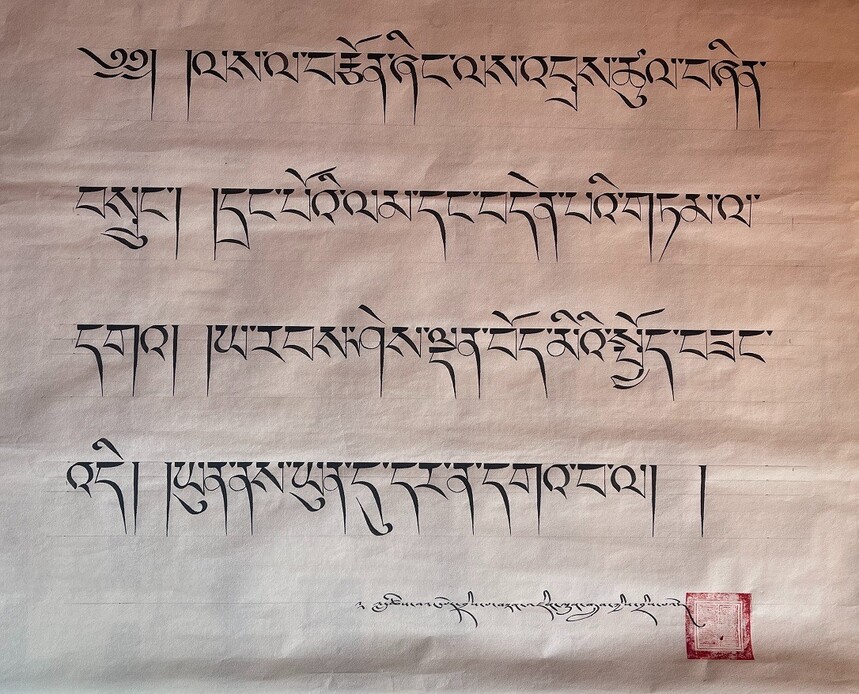 ༄༅། །ལས་ལ་བརྩོན་ཞིང་ལས་འབྲས་ཚུལ་བཞིན་
བསྲུང་། །དྲང་པོའི་ལམ་དང་བདེན་པའི་གཏམ་ལ་
དགའ། །ཡ་རབས་ཤེས་ལྡན་བོད་མིའི་སྤྱོད་བཟང་
འདི། །ཡུན་ནས་ཡུན་དུ་དར་ན་དགའ་བ་ལ། །